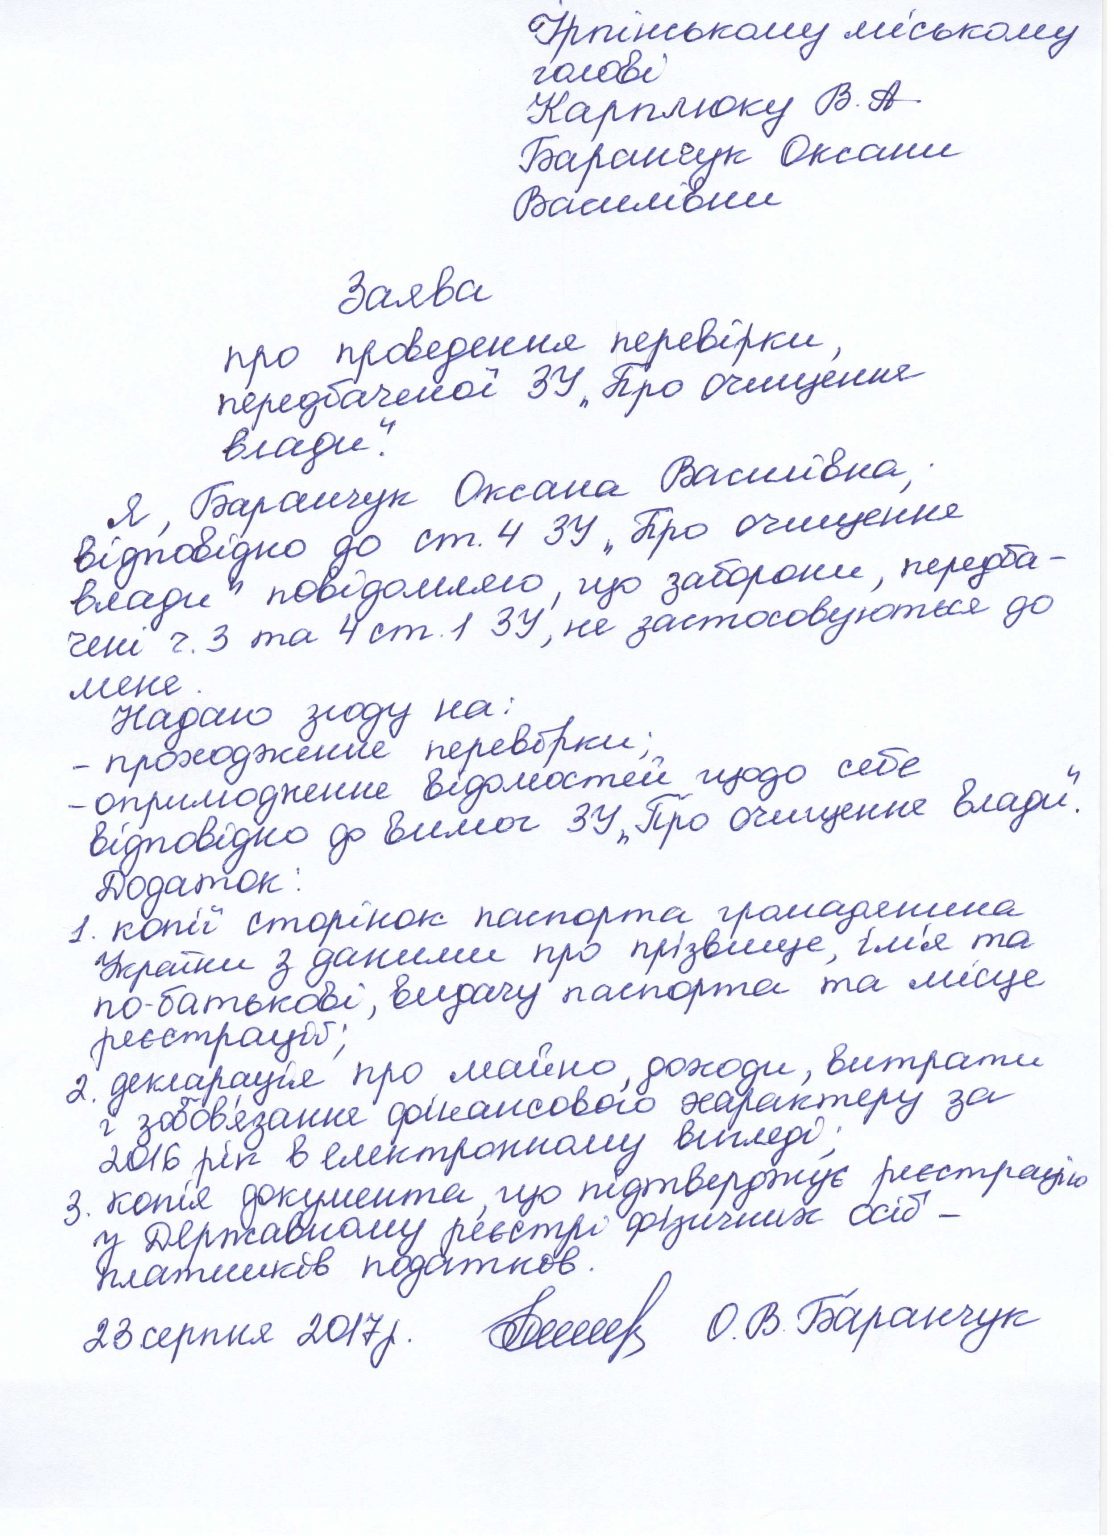 Ірпінському міському
голові
Карплюку В.А
Баранчук Оксани
Василівни
Заява
про проведення перевірки,
передбаченої ЗУ „Про очищення
влади".
Я, Баранчук Оксана Василівна,
відповідно до ст. 4 ЗУ „Про очищення
влади" повідомляю, що заборони, передба-
чені ч. 3 та 4 ст. 1 ЗУ, не застосовуються до
мене.
Надаю згоду на:
- проходження перевірки;
- оприлюднення відомостей щодо себе
відповідно до вимог ЗУ „Про очищення влади".
Додаток:
1. копії сторінок паспорта громадянина
України з даними про прізвище, ім'я та
по-батькові, видачу паспорта та місце
реєстрації;
2. декларація про майно, доходи, витрати
і зобов'язання фінансового характеру за
2016 рік в електронному вигляді;
3. копія документа, що підтверджує реєстрацію
у Державному реєстрі фізичних осіб -
платників податків.
23 серпня 2017р. О.В. Баранчук